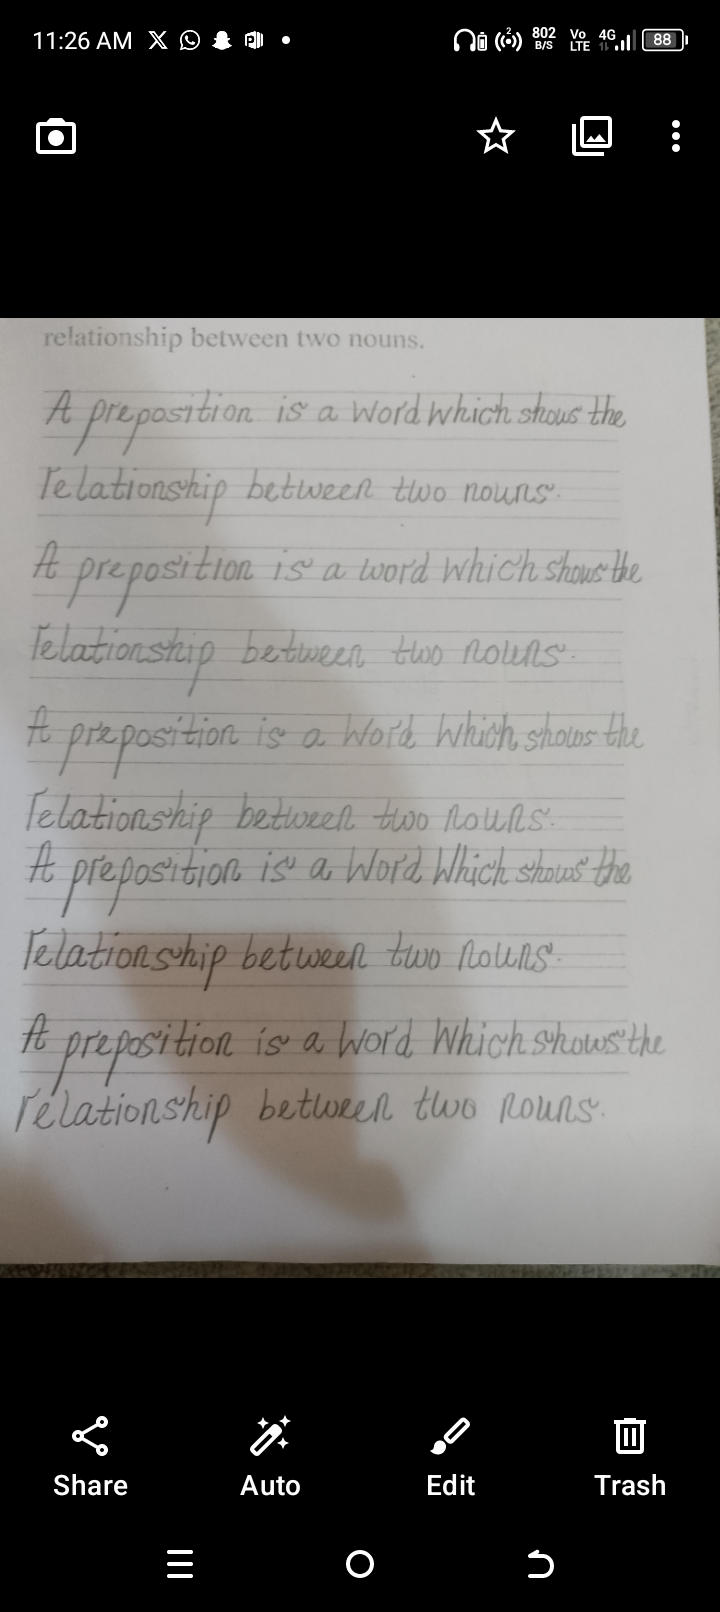 11:26 AM 802 B/S Vo LTE 4G 88
relationship between two nouns.
A preposition is a word which shows the
relationship between two nouns.
A preposition is a word which shows the
relationship between two nouns.
A preposition is a word which shows the
relationship between two nouns.
A preposition is a word which shows the
relationship between two nouns.
A preposition is a word which shows the
relationship between two nouns.
Share Auto Edit Trash